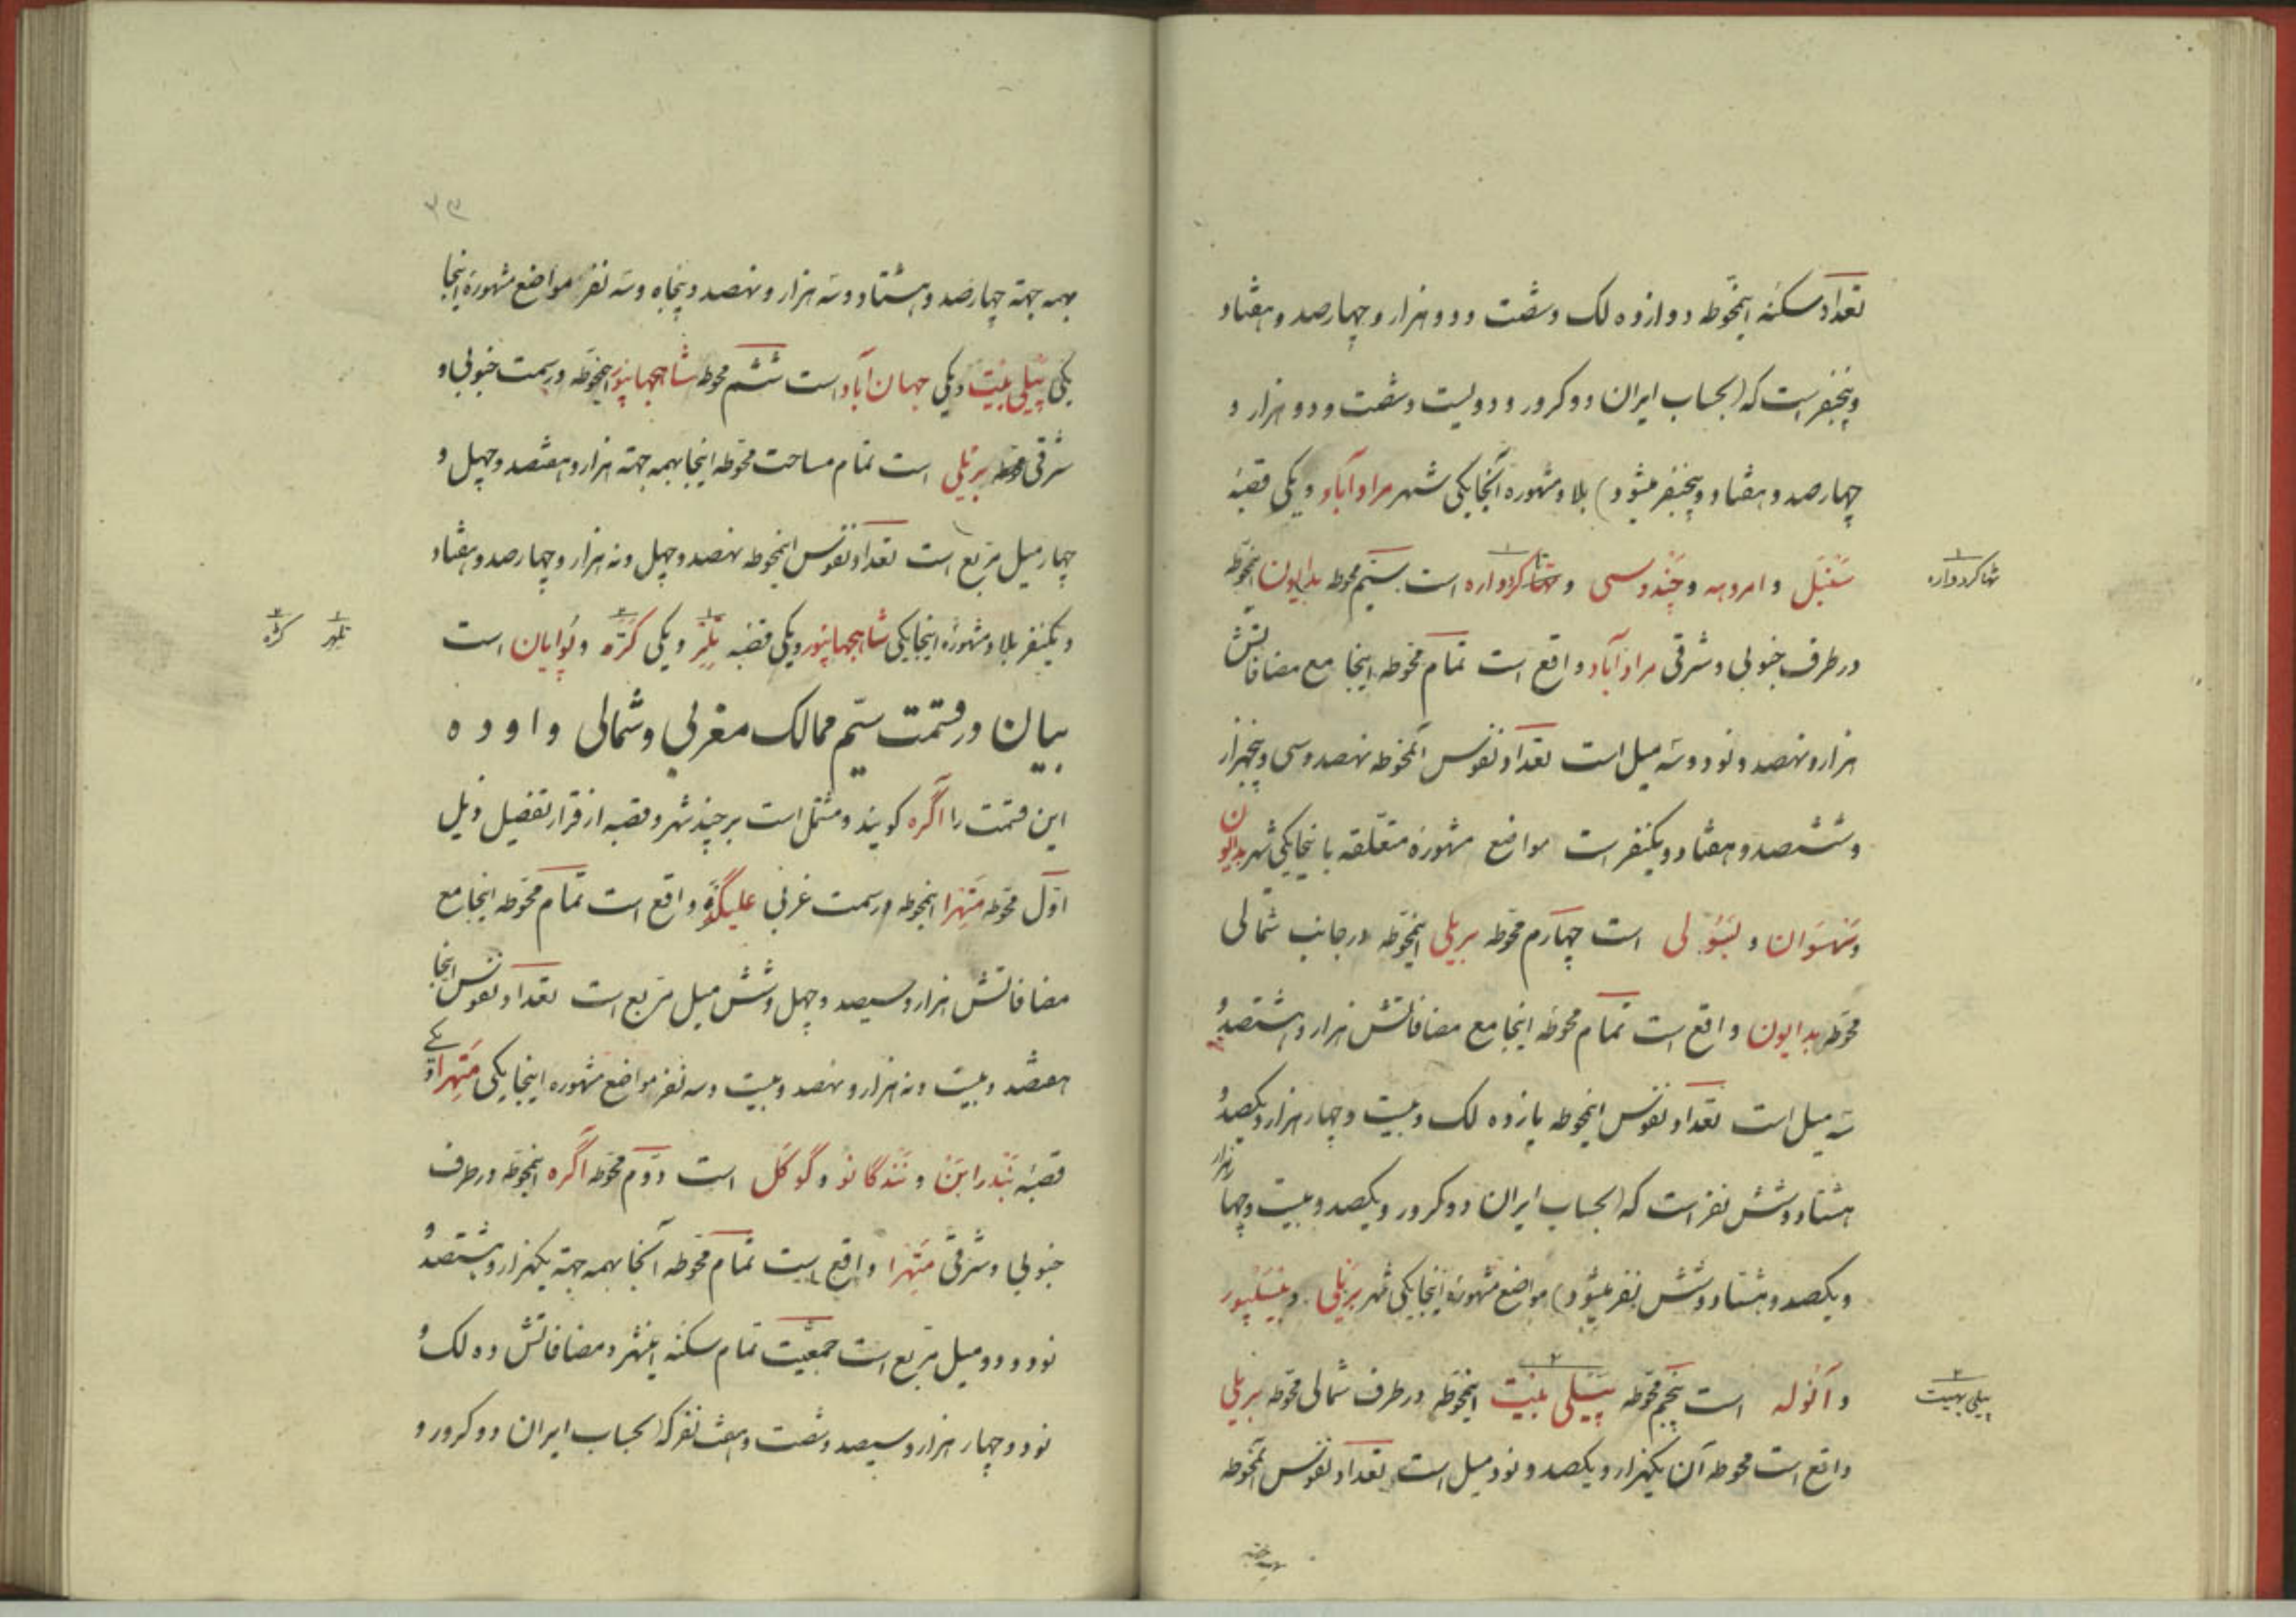 تعداد سکنهٔ اینحوطه دوازده لک و شصت و دو هزار و چهارصد و هفتاد
و پنجنفر است که (بحساب ایران دو کرور و دویست و شصت و دو هزار و
چهارصد و هفتاد و پنجنفر میشود) بلاد مشهوره آنجا یکی شهر مراد آباد و یکی قصبهٔ
سَنْبَل و امروهه و چَندوسی و تهاکردواره است سیّم محوطه بدایون اینحوطه
تهاکردواره
در طرف جنوبی و شرقی مراد آباد واقع است تمام محوطه اینجا مع مضافاتش
هزار و نهصد و نود و سه میل است تعداد نفوس آنمحوطه نهصد و سی و پنجهزار
و ششصد و هفتاد و یکنفر است مواضع مشهورهٔ متعلّقه باینجا یکی شهر بدایون
و سَهسَوان و بَسُولی است چهارم محوّطه بریلی اینحوّطه در جانب شمالی
محوّطه بدایون واقع است تمام محوطه اینجا مع مضافاتش هزار و هشتصد و
سه میل است تعداد نفوس اینحوطه پانزده لک و بیست و چهار هزار و یکصد و
هشتاد و شش نفر است که (بحساب ایران دو کرور و یکصد و بیست و چهار هزار
و یکصد و هشتاد و شش نفر میشود) مواضع مشهورهٔ اینجا یکی شهر بریلی و بیسلپور
و آنوله است پنجم محوّطه پیلی بیت اینحوّطه در طرف شمالی محوّطه بریلی
پیلی بهیت
واقع است محوطه آن یکهزار و یکصد و نود میل است تعداد نفوس آنمحوطه
۳۳
بهمه جهة چهارصد و هشتاد و سه هزار و نهصد و پنجاه و سه نفر مواضع مشهورهٔ اینجا
یکی پیلی بیت و یکی جهان آباد است ششم محوطه شاهجهانپور اینحوّطه در سمت جنوبی و
شرقی محوطه بریلی است تمام مساحت محوّطه اینجا بهمه جهة هزار و هفتصد و چهل و
چهار میل مربع است تعداد نفوس اینحوطه نهصد و چهل و نه هزار و چهارصد و هفتاد
و یکنفر بلاد مشهورهٔ اینجا یکی شاهجهانپور و یکی قصبه تِلِر و یکی کَرّه و پُوایان است
تلهر کره
بیان در قسمت سیّم ممالک مغربی و شمالی و اوده
این قسمت را اگره گویند و مشتمل است بر چند شهر و قصبه از قرار تفضیل ذیل
اوّل محوّطه مَتِهرا اینحوطه در سمت غربی علیگره واقع است تمام محوّطه اینجا مع
مضافاتش هزار و سیصد و چهل و شش میل مربع است تعداد نفوس اینجا
هفتصد و بیست و نه هزار و نهصد و بیست و سه نفر مواضع مشهوره اینجا یکی مَتِهرا و یکی
قصبهٔ بَندرابن و نَندگانو و گوکَل است دوّم محوّطه اگره اینحوّطه در طرف
جنوبی و شرقی مَتِهرا واقع است تمام محوّطه آنجا بهمه جهة یکهزار و هشتصد و
نود و دو میل مربع است جمعیّت تمام سکنهٔ اینشهر و مضافاتش ده لک و
نود و چهار هزار و سیصد و شصت و هفت نفر که (بحساب ایران دو کرور و